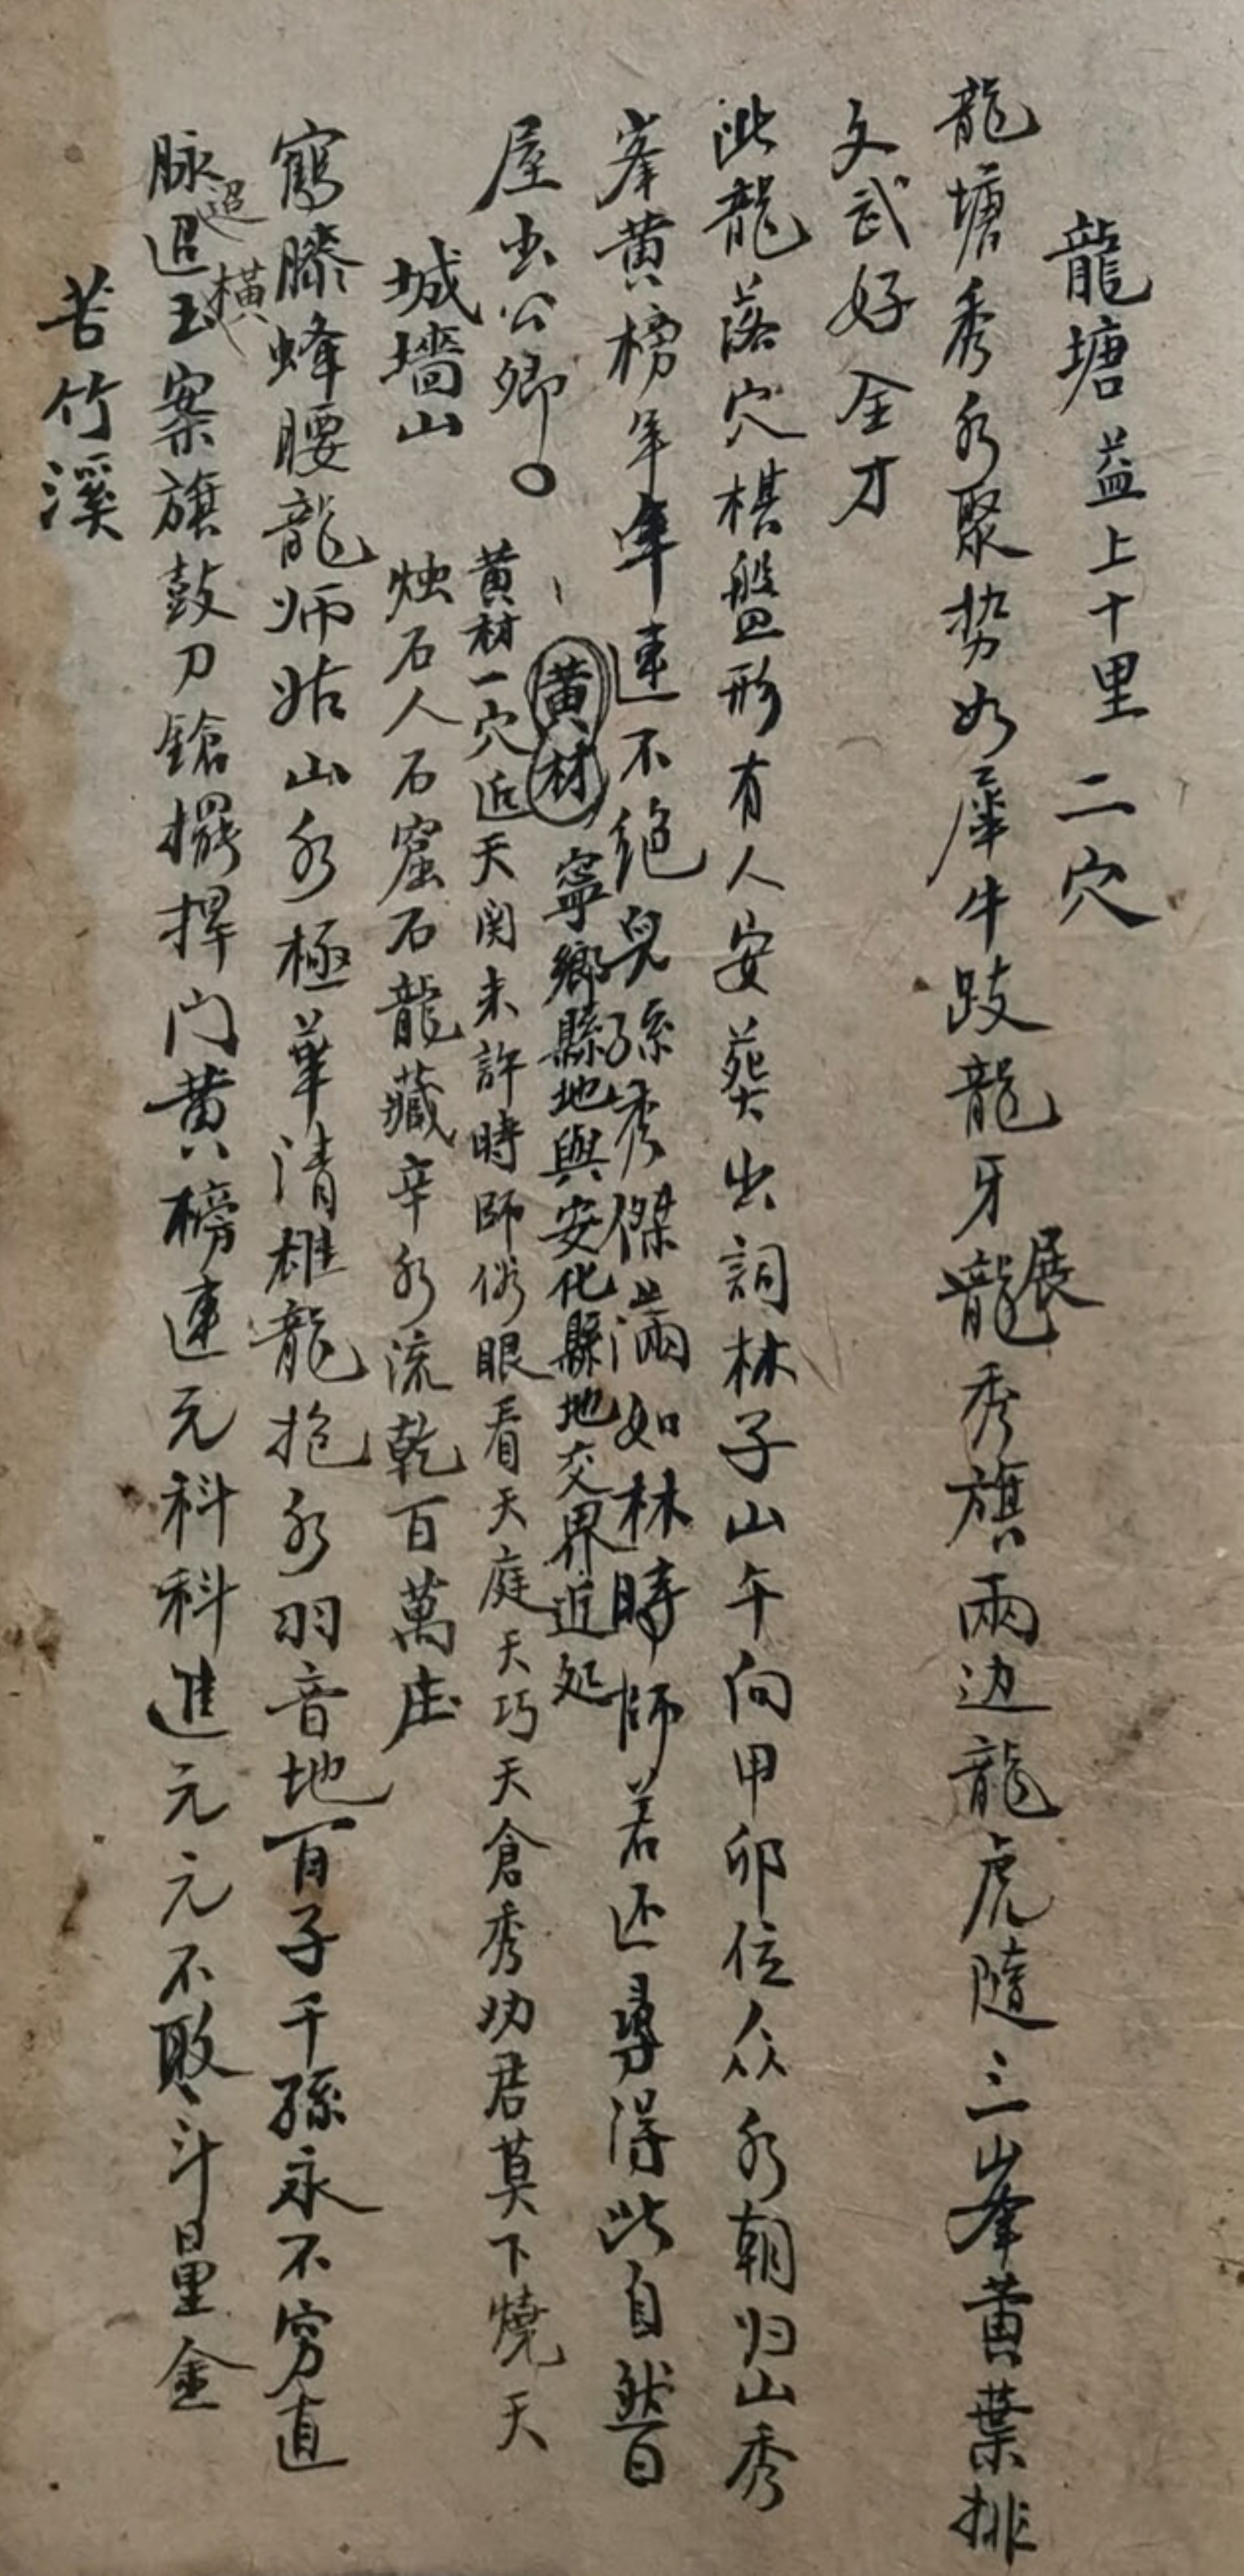 龍塘 益上十里 二穴
龍塘秀水聚势如犀牛跂龍牙龍展秀旗兩边龍虎隨三峯黄葉排
文武好全才
此龍落穴棋盤形有人安葬出詞林子山午向甲卯位众水朝归山秀
峯黄榜年年連不绝兒孫秀傑滿如林時師若还尋得此自然白
屋出公卿○
黄材 寧鄉縣地與安化縣地交界近处
黄材一穴近天関未許時師俗眼看天庭天巧天倉秀劝君莫下燒天
城墻山
烛石人石窟石龍藏辛水流乾百萬庄
鶴膝蜂腰龍师姑山水極華清雄龍抱水羽音地百子千孫永不穷直
迢橫
脉迢玉案旗鼓刀鎗擺捍门黄榜連元科科進元元不敗斗量金
苦竹溪